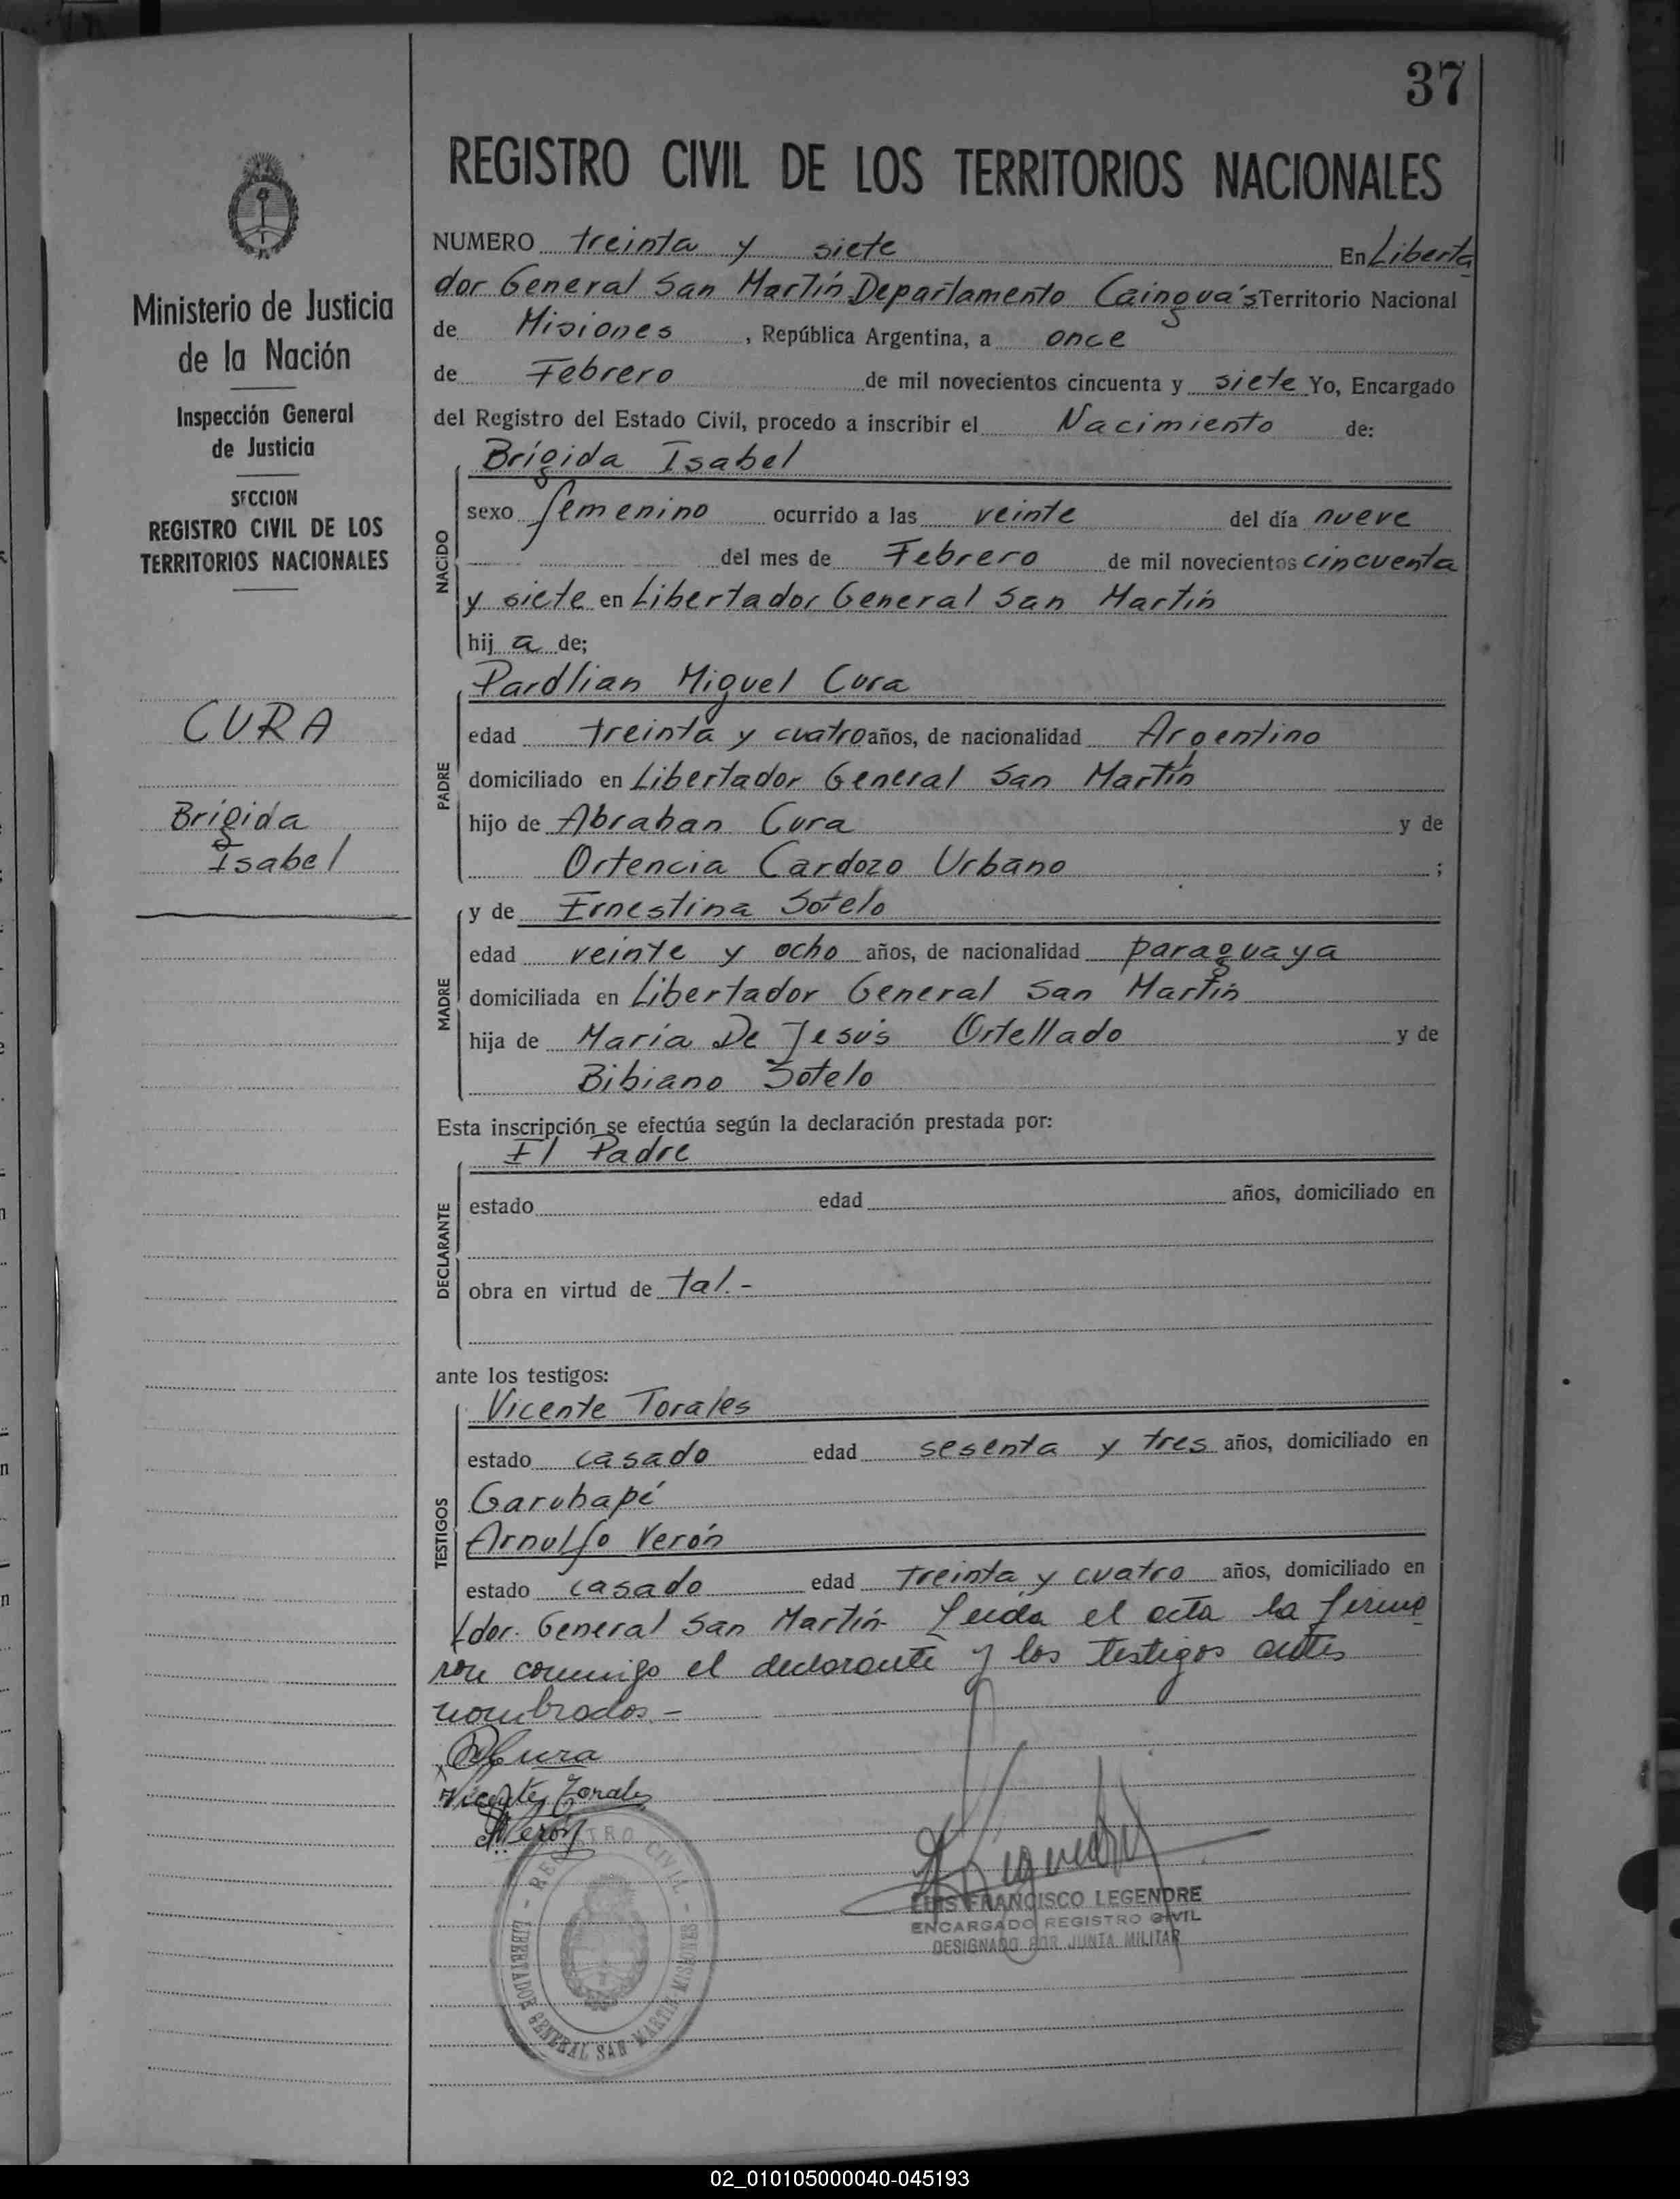 37
REGISTRO CIVIL DE LOS TERRITORIOS NACIONALES
Ministerio de Justicia
de la Nación
Inspección General
de Justicia
SECCION
REGISTRO CIVIL DE LOS
TERRITORIOS NACIONALES
CURA
Brígida
Isabel
NUMERO treinta y siete En Liberta
dor General San Martín Departamento Cainguá's Territorio Nacional
de Misiones, República Argentina, a once
de Febrero de mil novecientos cincuenta y siete Yo, Encargado
del Registro del Estado Civil, procedo a inscribir el Nacimiento de:
NACIDO
Brígida Isabel
sexo femenino ocurrido a las veinte del día nueve
del mes de Febrero de mil novecientos cincuenta
y siete en Libertador General San Martín
hij a de;
PADRE
Pardlian Miguel Cura
edad treinta y cuatro años, de nacionalidad Argentino
domiciliado en Libertador General San Martín
hijo de Abrahan Cura y de
Ortencia Cardozo Urbano ;
MADRE
y de Ernestina Sotelo
edad veinte y ocho años, de nacionalidad paraguaya
domiciliada en Libertador General San Martín
hija de María De Jesús Ortellado y de
Bibiano Sotelo
Esta inscripción se efectúa según la declaración prestada por:
DECLARANTE
El Padre
estado edad años, domiciliado en
obra en virtud de tal.-
ante los testigos:
TESTIGOS
Vicente Torales
estado casado edad sesenta y tres años, domiciliado en
Garuhapé
Arnulfo Verón
estado casado edad treinta y cuatro años, domiciliado en
Ldor. General San Martín Leída el acta la firma
ron conmigo el declarante y los testigos antes
nombrados.-
Cura
Vicente Torales
Verón
REGISTRO CIVIL
LIBERTADOR GENERAL SAN MARTIN MISIONES
LUIS FRANCISCO LEGENDRE
ENCARGADO REGISTRO CIVIL
DESIGNADO POR JUNTA MILITAR
02_010105000040-045193